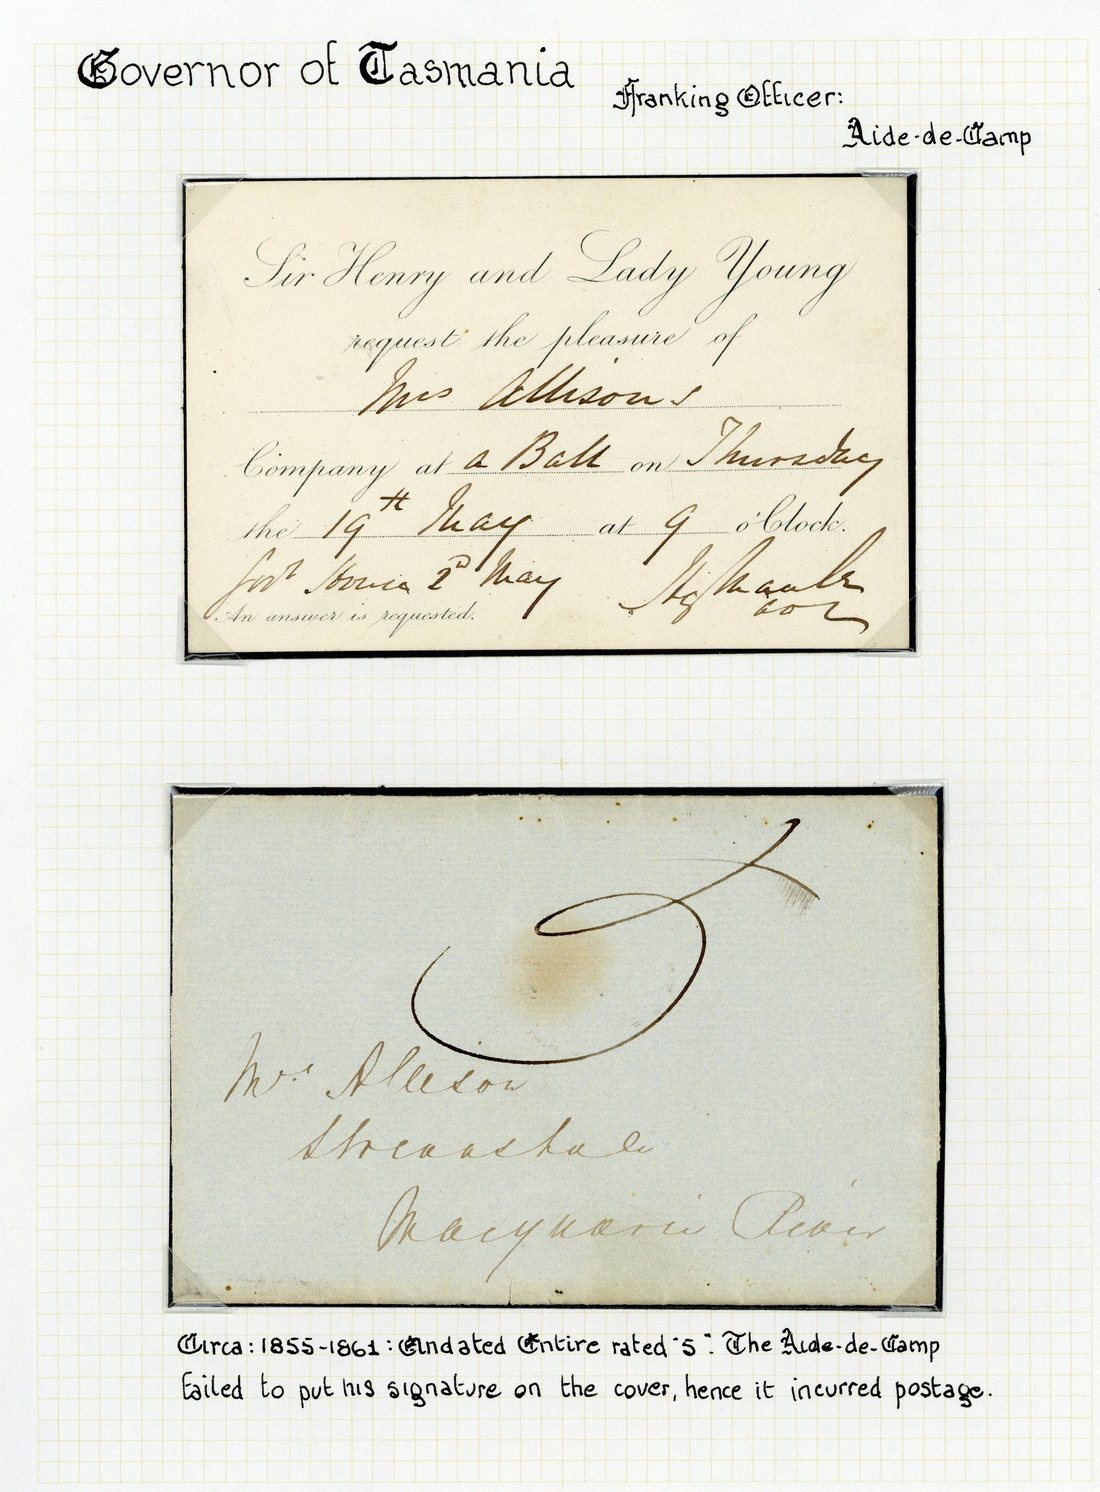 Governor of Tasmania
Franking Officer:
Aide-de-Camp
Sir Henry and Lady Young
request the pleasure of
Mrs Allison's
Company at a Ball on Thursday
the 19th May at 9 o'Clock.
Govt House 2d May
An answer is requested.
5
Mrs Allison
Streanshalh
Macquarie River
Circa: 1855-1861: Undated Entire rated "5". The Aide-de-Camp
failed to put his signature on the cover, hence it incurred postage.